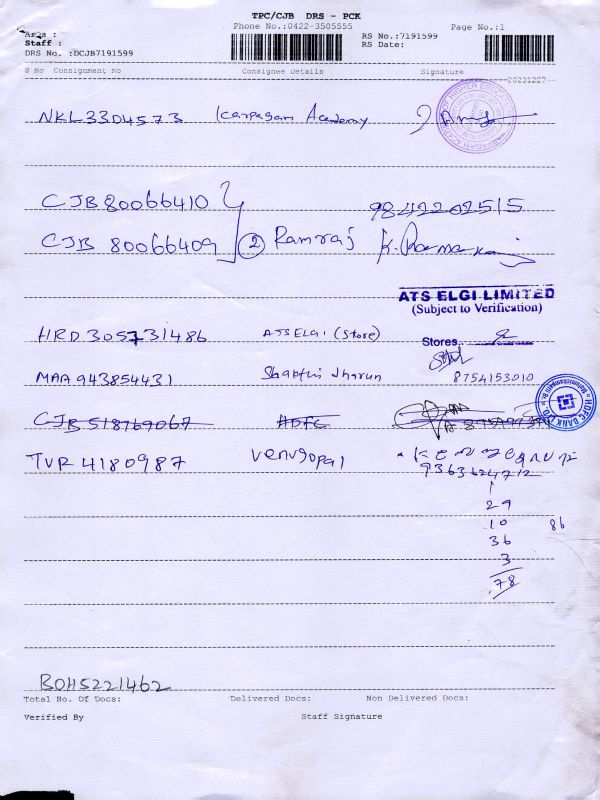 TPC/CJB DRS - PCK
Phone No.:0422-3505555 Page No.:1
Area : RS No.:7191599
Staff : RS Date:
DRS No. :DCJB7191599
S No Consignment No Consignee Details Signature
20231227
NKL3304573 Karpagam Academy
CJB80066410 9842202515
CJB 80066409 ② Ramraj
ATS ELGI LIMITED
(Subject to Verification)
HRD305731486 ATSELGI (Store) Stores
MAA943854431 8754153010
CJB 518769067 HDFC
HDFC BANK LTD
TVR4180987 Venugopal
9363624712
29
10 86
36
3
78
BOH5221462
Total No. Of Docs: Delivered Docs: Non Delivered Docs:
Verified By Staff Signature